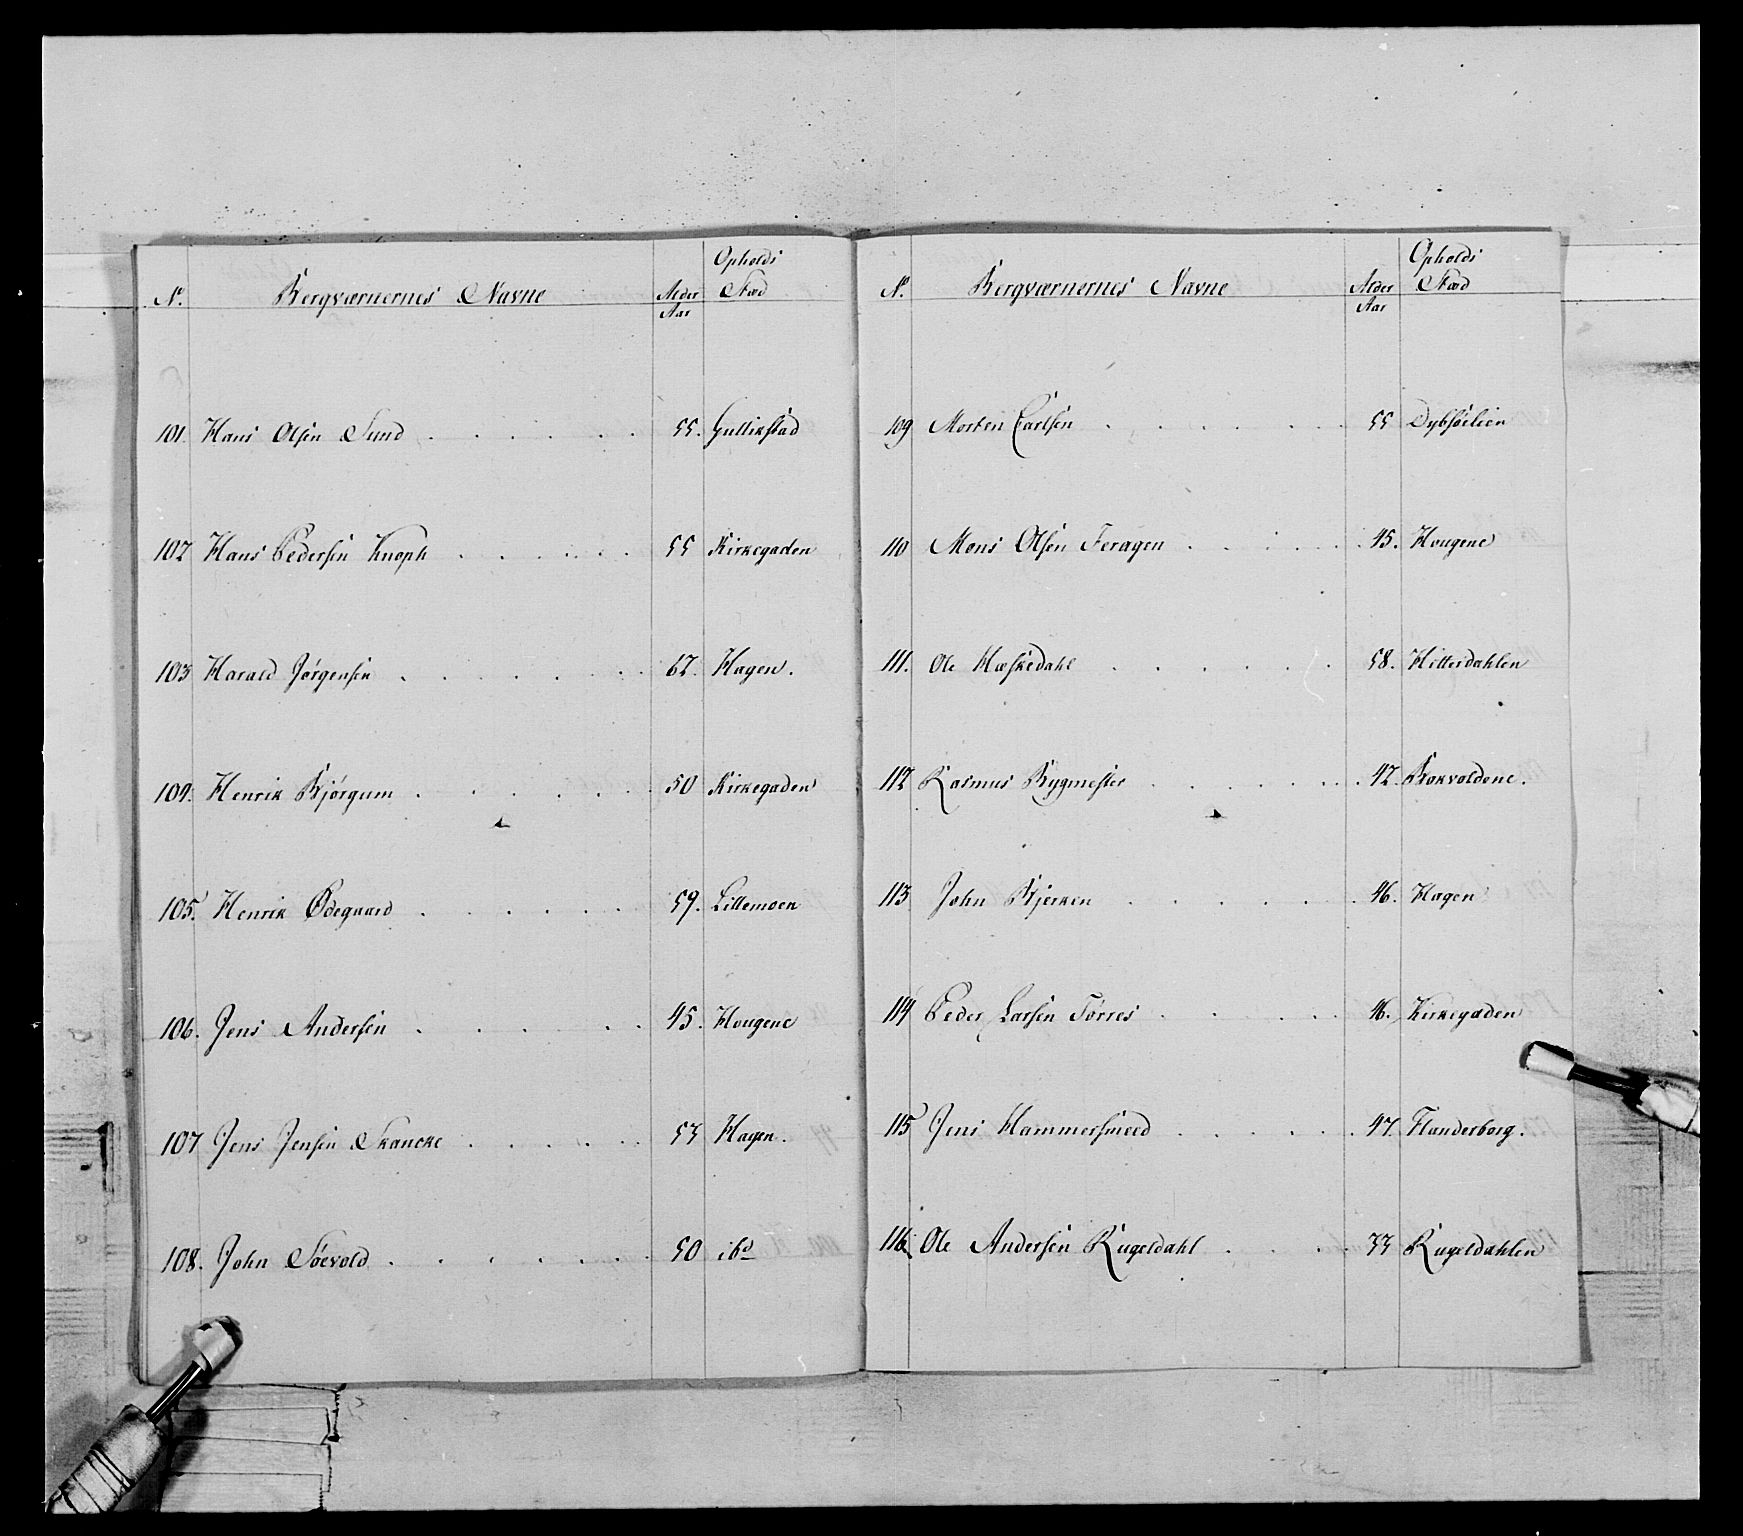 Opholds
No. Bergværnernes Navne Alder Stæd
Aar
101. Hans Olsen Sund 55. Gullikstad
102 Hans Pedersen Knoph 55 Kirkegaden
103 Harald Jørgensen 62. Hagen.
104. Henrik Bjørgum 50 Kirkegaden
105. Henrik Ødegaard 59. Lillemoen
106. Jens Andersen 45. Hougene
107 Jens Jensen Skancke 53 Hagen.
108. John Söevold 50 ibd
Opholds
No. Bergværnernes Navne Alder Stæd
Aar
109 Morten Carlsen 55 Dybsöelien
110 Mons Olsen Feragen 45. Hougene
111. Ole Hæskedahl 58. Hitterdahlen
112 Rasmus Bygmester 42. Rokvoldene.
113 John Bjerken 46. Hagen
114 Peder Larsen Tørres 46. Kirkegaden
115 Jens Hammersmeed 47. Flanderborg.
116. Ole Andersen Rugeldahl 33 Rugeldahlen